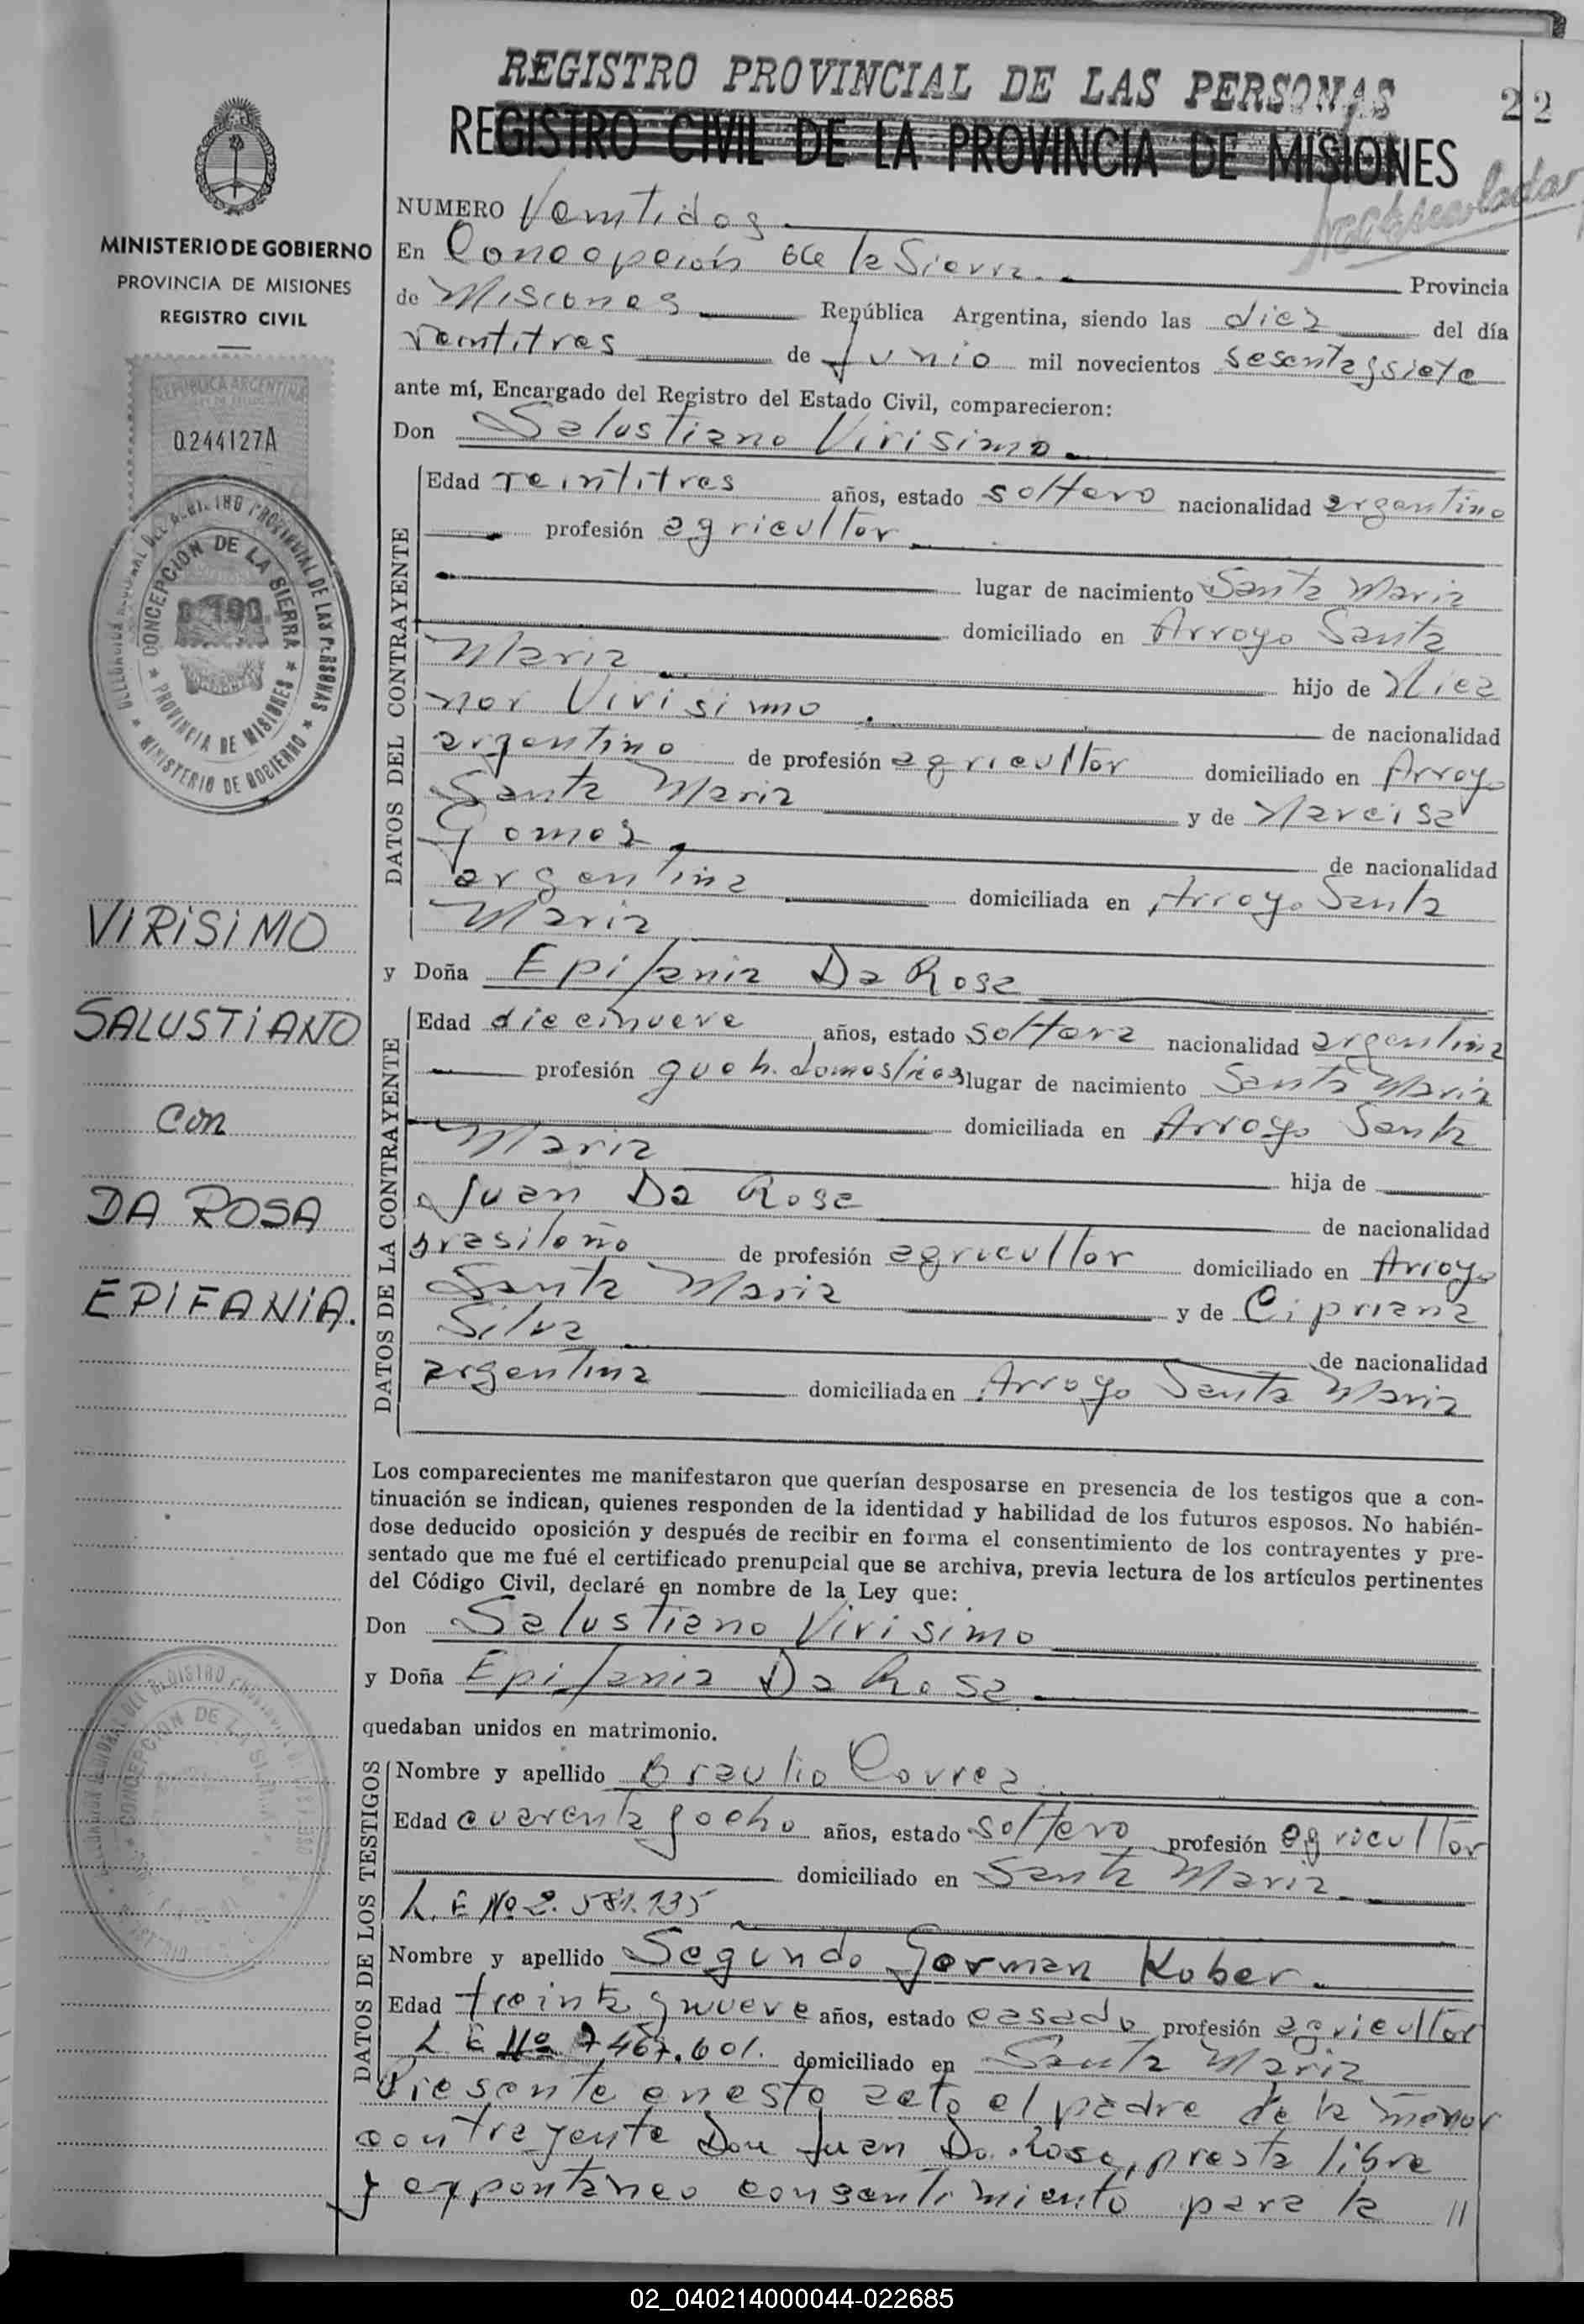 REGISTRO PROVINCIAL DE LAS PERSONAS
22
REGISTRO CIVIL DE LA PROVINCIA DE MISIONES
MINISTERIO DE GOBIERNO
PROVINCIA DE MISIONES
REGISTRO CIVIL
REPUBLICA ARGENTINA
0.244127A
CONCEPCION DE LA SIERRA
PROVINCIA DE MISIONES
MINISTERIO DE GOBIERNO
VIRISIMO
SALUSTIANO
con
DA ROSA
EPIFANIA.
NUMERO Veintidos
En Concepción de la Sierra. Provincia
de Misiones República Argentina, siendo las diez del día
veintitres de Junio mil novecientos sesenta y siete
ante mí, Encargado del Registro del Estado Civil, comparecieron:
Don Salustiano Virisimo
DATOS DEL CONTRAYENTE
Edad veintitres años, estado soltero nacionalidad argentino
profesión agricultor
lugar de nacimiento Santa Maria
domiciliado en Arroyo Santa
Maria hijo de
nor Virisimo de nacionalidad
argentino de profesión agricultor domiciliado en Arroyo
Santa Maria y de Narcisa
Gomez de nacionalidad
argentina domiciliada en Arroyo Santa
Maria
y Doña Epifania Da Rosa
DATOS DE LA CONTRAYENTE
Edad diecinueve años, estado soltera nacionalidad argentina
profesión queh. domesticos lugar de nacimiento Santa Maria
domiciliada en Arroyo Santa
Maria hija de
Juan Da Rosa de nacionalidad
brasileño de profesión agricultor domiciliado en Arroyo
Santa Maria y de Cipriana
Silva de nacionalidad
argentina domiciliada en Arroyo Santa Maria
Los comparecientes me manifestaron que querían desposarse en presencia de los testigos que a con-
tinuación se indican, quienes responden de la identidad y habilidad de los futuros esposos. No habién-
dose deducido oposición y después de recibir en forma el consentimiento de los contrayentes y pre-
sentado que me fué el certificado prenupcial que se archiva, previa lectura de los artículos pertinentes
del Código Civil, declaré en nombre de la Ley que:
Don Salustiano Virisimo
y Doña Epifania Da Rosa
quedaban unidos en matrimonio.
DATOS DE LOS TESTIGOS
Nombre y apellido Braulio Correa
Edad cuarenta y ocho años, estado soltero profesión agricultor
domiciliado en Santa Maria
L. E Nº 2. 581.135
Nombre y apellido Segundo German Kuber
Edad treinta y nueve años, estado casado profesión agricultor
L E Nº 7467.601. domiciliado en Santa Maria
Presente en este acto el padre de la menor
contrayente Don Juan Da Rosa, presta libre
y expontaneo consentimiento para la //
02_040214000044-022685